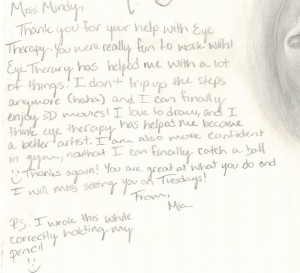 Miss Mindy,
Thank you for your help with Eye
Therapy. You were really fun to work with!
Eye Therapy has helped me with a lot
of things. I don't trip up the steps
anymore (haha) and I can finally
enjoy 3D movies! I love to draw, and I
think eye therapy has helped me become
a better artist. I am also more confident
in gym, now that I can finally catch a ball
Thanks again! You are great at what you do and
I will miss seeing you on Tuesdays!
From,
Mia
P.S. I wrote this while
correctly holding my
pencil